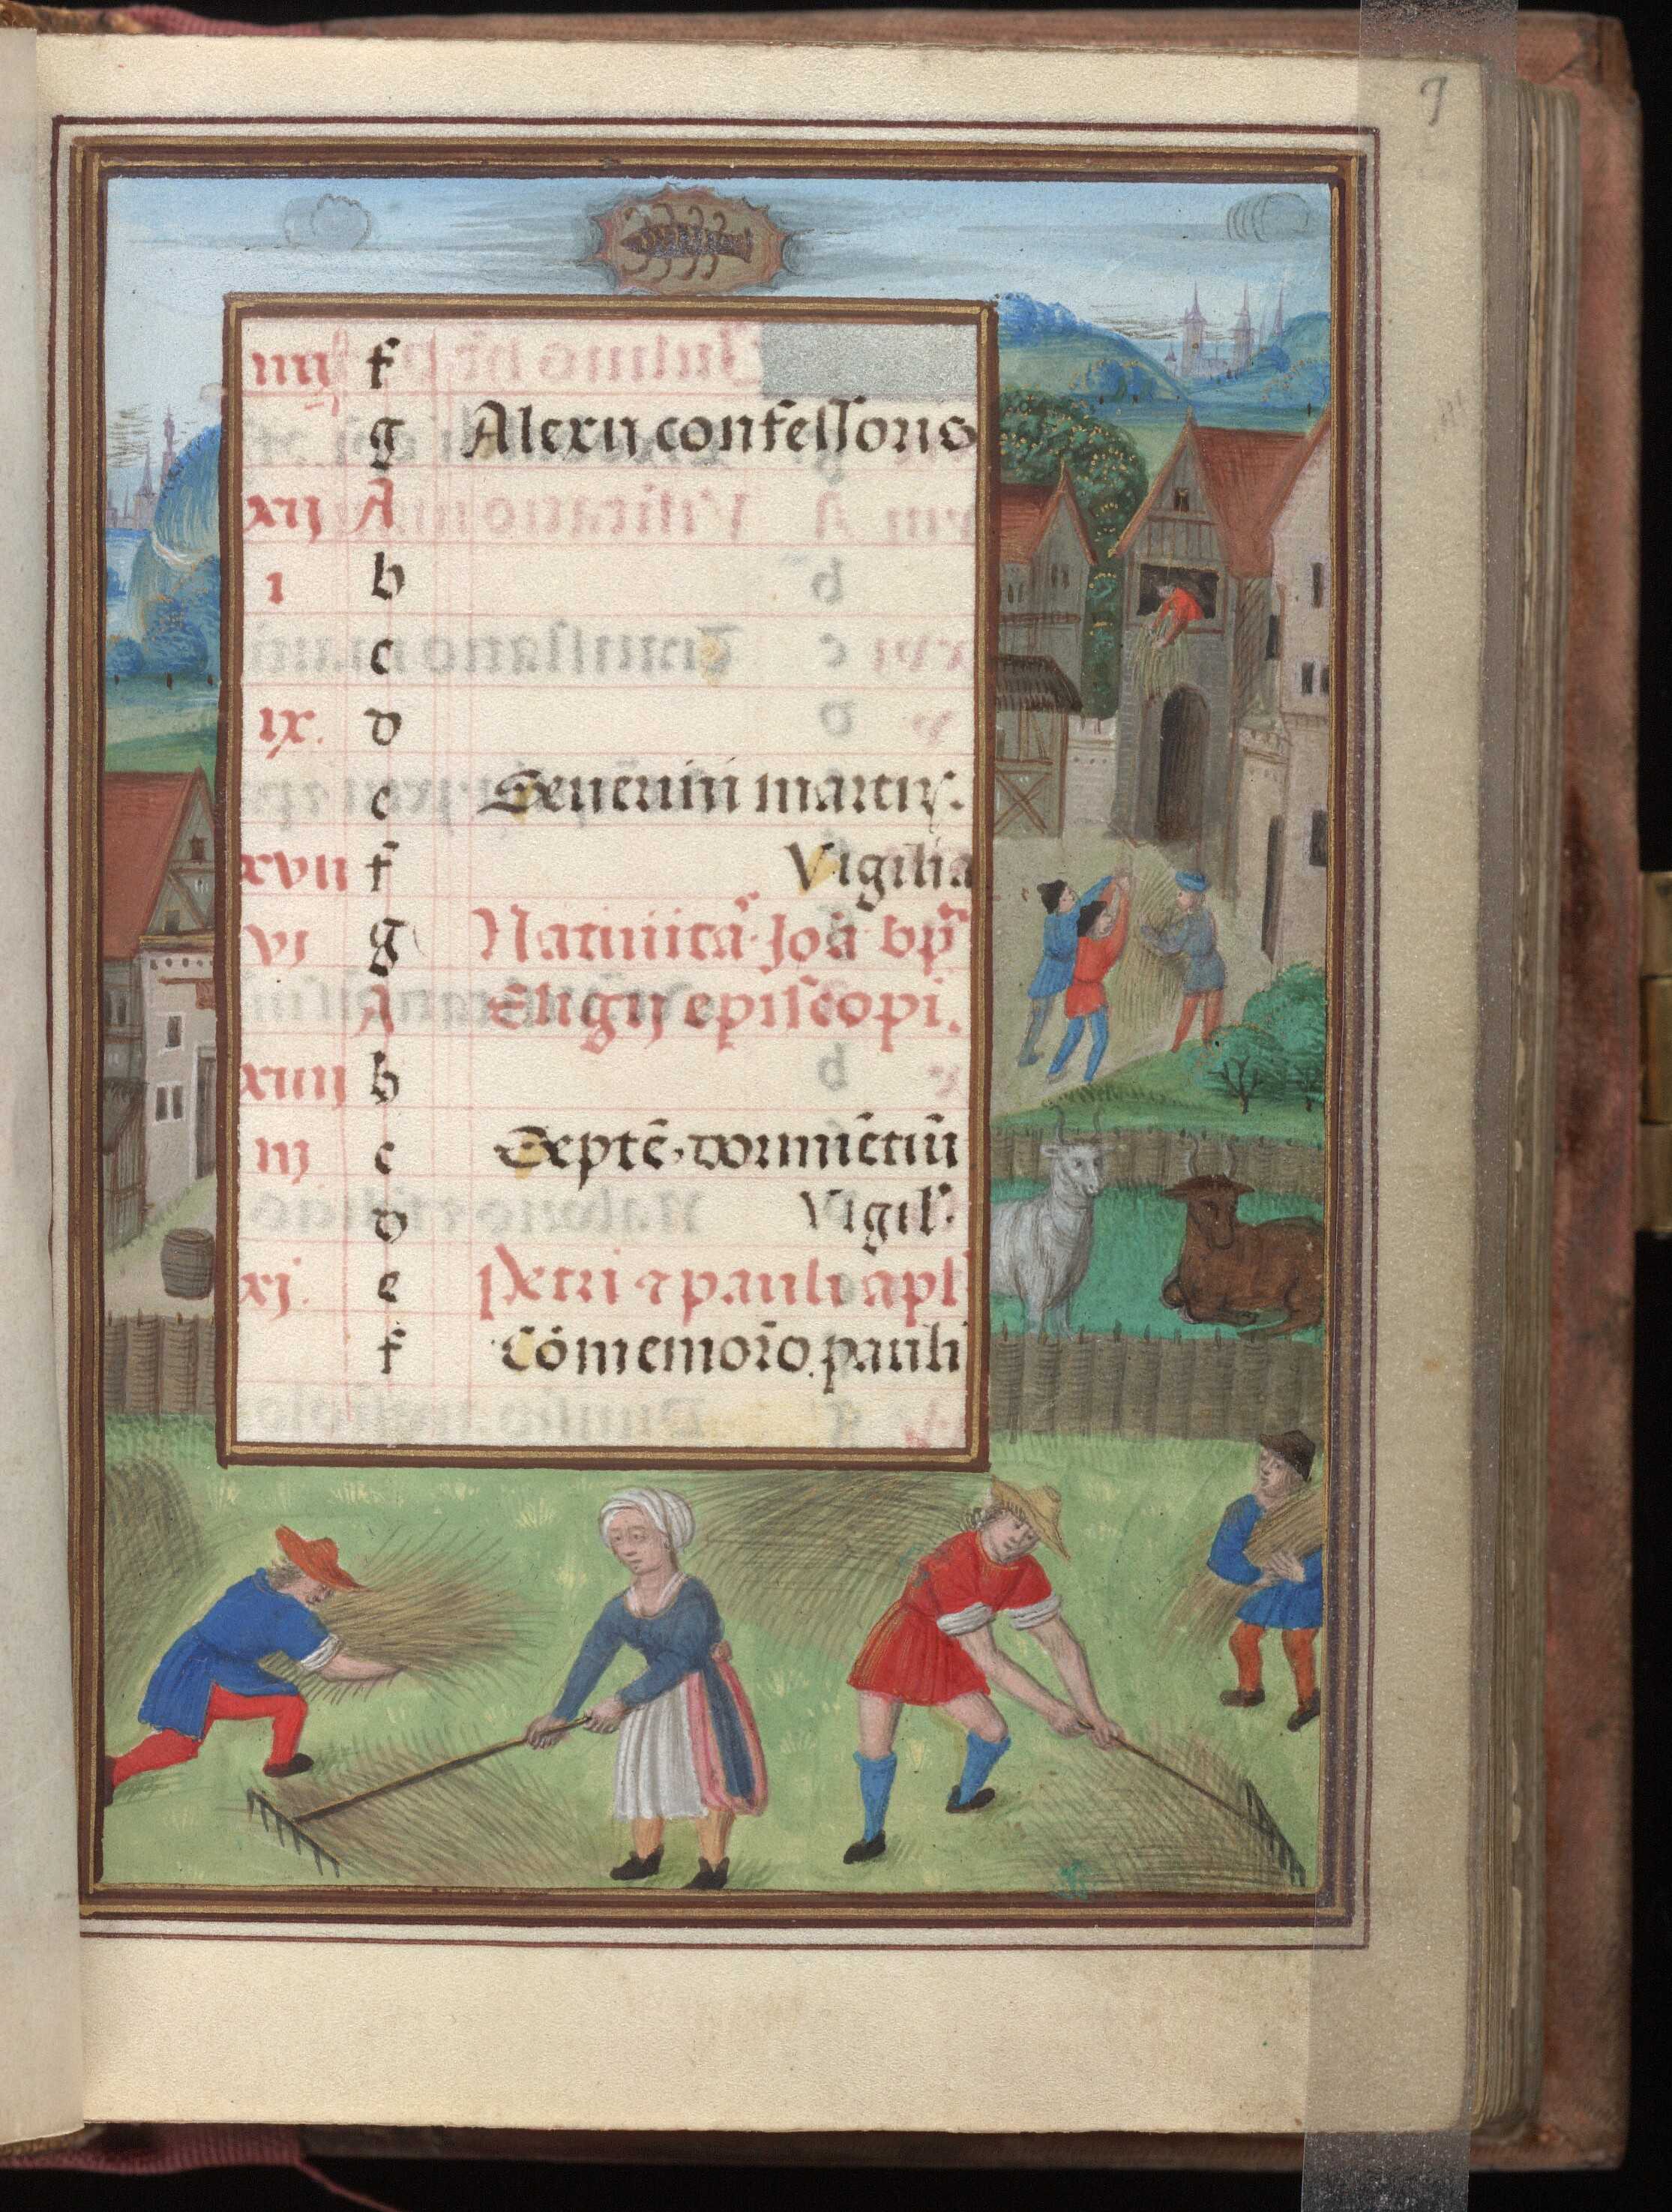 7
iiij f
g Alexii confessoris
xij A
i b
c
ix. d
e Seuerini martir.
xvii f Vigilia
vi g Natiuita. Joā bp
A Eligij episcopi.
xiiii b
iij c Septē. dormiētiū
d Vigil.
xj. e Petri ⁊ pauli apl
f Cōmemorō. pauli